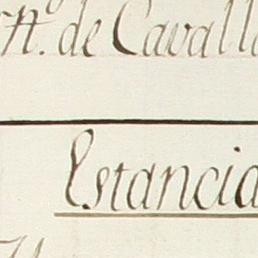 de Cavall
Estancia